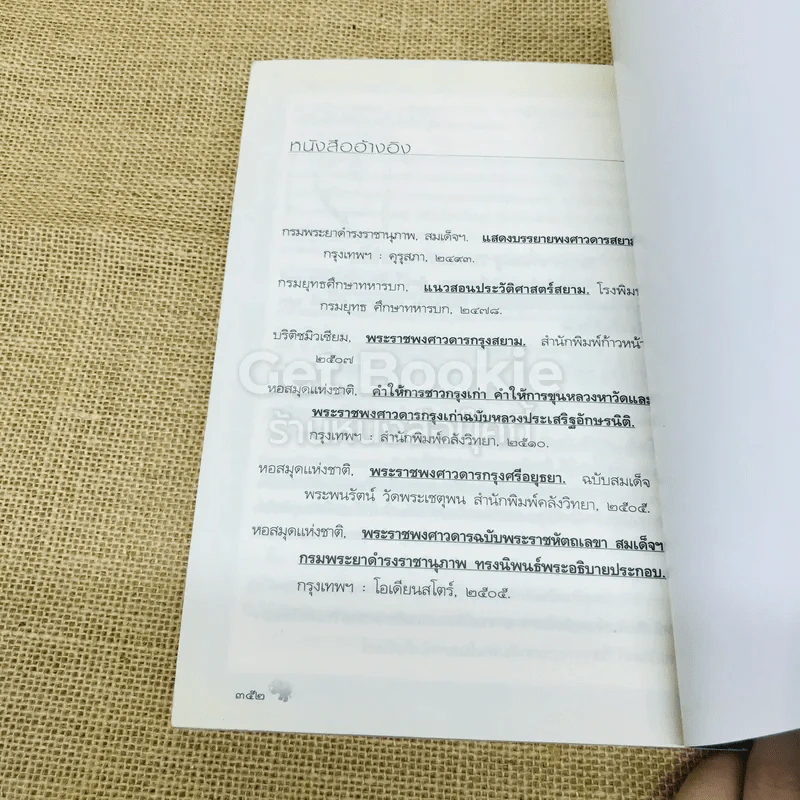 หนังสืออ้างอิง
กรมพระยาดำรงราชานุภาพ, สมเด็จฯ. แสดงบรรยายพงศาวดารสยาม
กรุงเทพฯ : คุรุสภา, ๒๔๙๓.
กรมยุทธศึกษาทหารบก, แนวสอนประวัติศาสตร์สยาม. โรงพิมพ์
กรมยุทธ ศึกษาทหารบก, ๒๔๗๘.
บริติชมิวเซียม, พระราชพงศาวดารกรุงสยาม. สำนักพิมพ์ก้าวหน้า
๒๕๐๗
หอสมุดแห่งชาติ. คำให้การชาวกรุงเก่า คำให้การขุนหลวงหาวัดและ
พระราชพงศาวดารกรุงเก่าฉบับหลวงประเสริฐอักษรนิติ.
กรุงเทพฯ : สำนักพิมพ์คลังวิทยา, ๒๕๑๐.
หอสมุดแห่งชาติ. พระราชพงศาวดารกรุงศรีอยุธยา. ฉบับสมเด็จ
พระพนรัตน์ วัดพระเชตุพน สำนักพิมพ์คลังวิทยา, ๒๕๐๕.
หอสมุดแห่งชาติ, พระราชพงศาวดารฉบับพระราชหัตถเลขา สมเด็จฯ
กรมพระยาดำรงราชานุภาพ ทรงนิพนธ์พระอธิบายประกอบ.
กรุงเทพฯ : โอเดียนสโตร์, ๒๕๐๕.
๓๕๒
Get Bookie